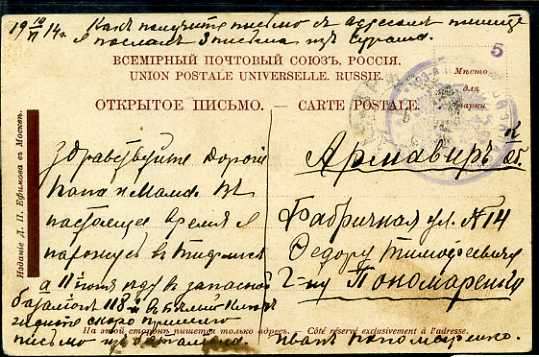 19 10/VI 14 г. Какъ получите письмо съ адресомъ пишите
Я послалъ 3 письма изъ Сурама.
5
ВСЕМІРНЫЙ ПОЧТОВЫЙ СОЮЗЪ. РОССІЯ.
UNION POSTALE UNIVERSELLE. RUSSIE.
ОТКРЫТОЕ ПИСЬМО. — CARTE POSTALE.
Мѣсто
для
марки
Изданіе Д. П. Ефимова въ Москвѣ.
Здравствуйте дорогіе
папа и мама. Въ
настоящее время я
нахожусь в Тифлисе
а 11 іюня иду в запасной
баталіонъ 118 в Белый Ключъ
ждите скоро пришлю
письмо изъ баталіона.
Армавиръ К. об.
Фабричная ул. № 14
Федору Тимофеевичу
Г-ну Пономаренко
Иванъ Пономаренко.
На этой сторонѣ пишется только адресъ.
Côté réservé exclusivement à l'adresse.